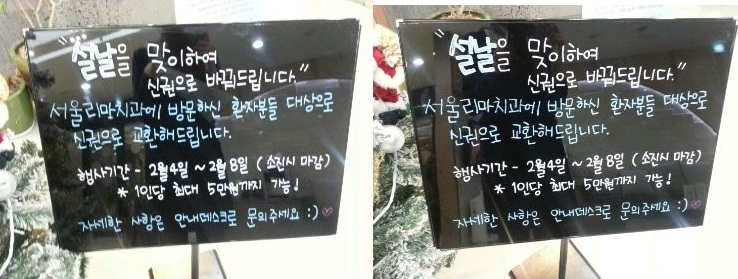 "설날을 맞이하여
신권으로 바꿔드립니다."
서울리마치과에 방문하신 환자분들 대상으로
신권으로 교환해드립니다.
행사기간 - 2월4일 ~ 2월 8일 ( 소진시 마감 )
* 1인당 최대 5만원까지 가능!
자세한 사항은 안내데스크로 문의주세요 :) ♡
"설날을 맞이하여
신권으로 바꿔드립니다."
서울리마치과에 방문하신 환자분들 대상으로
신권으로 교환해드립니다.
행사기간 - 2월4일 ~ 2월 8일 ( 소진시 마감 )
* 1인당 최대 5만원까지 가능!
자세한 사항은 안내데스크로 문의주세요 :) ♡